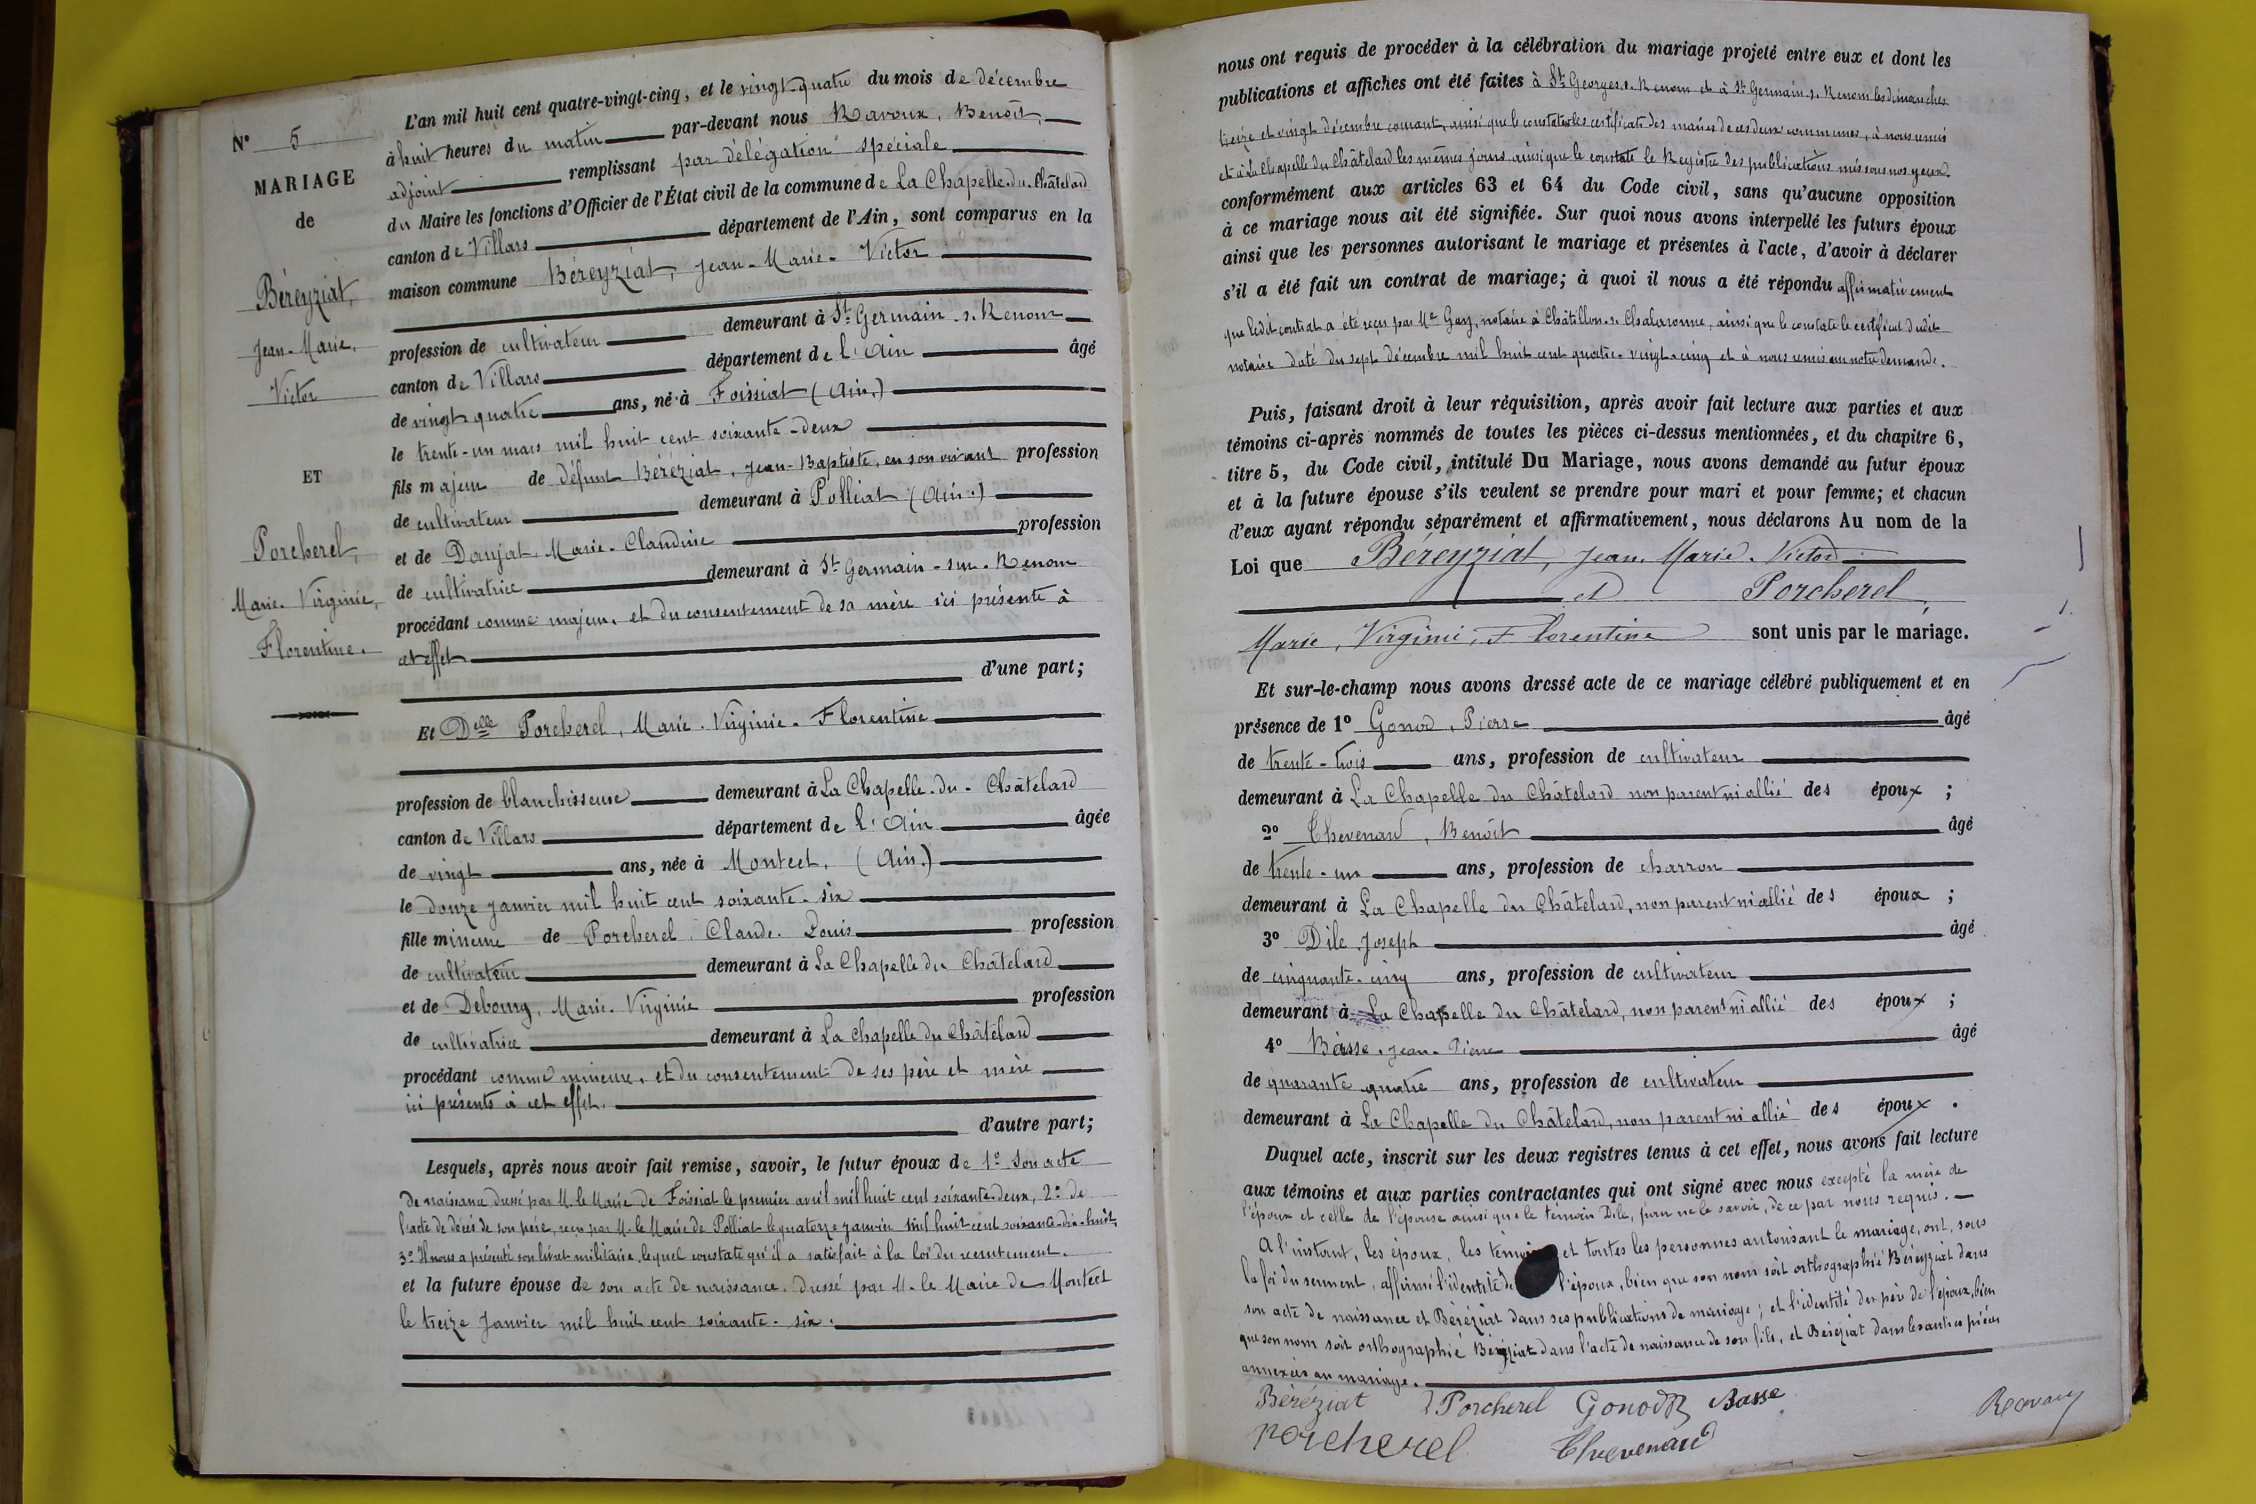 N° 5
MARIAGE
de
Béreyziat,
Jean-Marie,
Victor
ET
Porcherel,
Marie-Virginie,
Florentine.
L'an mil huit cent quatre-vingt-cinq, et le vingt-quatre du mois de décembre
à huit heures du matin par-devant nous Ravoux, Benoît,
adjoint remplissant par délégation spéciale
du Maire les fonctions d'Officier de l'État civil de la commune de La Chapelle-du-Châtelard
canton de Villars département de l'Ain, sont comparus en la
maison commune Béreyziat, Jean-Marie-Victor
profession de cultivateur demeurant à St Germain-s.-Renom
canton de Villars département de l'Ain âgé
de vingt quatre ans, né à Foissiat (Ain.)
le trente-un mars mil huit cent soixante-deux
fils majeur de défunt Béréziat, Jean-Baptiste, en son vivant profession
de cultivateur demeurant à Polliat (Ain.)
et de Daujat, Marie-Claudine profession
de cultivatrice demeurant à St Germain-sur-Renom
procédant comme majeur, et du consentement de sa mère ici présente à
cet effet
d'une part;
Et Delle Porcherel, Marie-Virginie-Florentine
profession de blanchisseuse demeurant à La Chapelle-du-Châtelard
canton de Villars département de l'Ain âgée
de vingt ans, née à Montcet, (Ain.)
le douze janvier mil huit cent soixante-six
fille mineure de Porcherel, Claude-Louis profession
de cultivateur demeurant à La Chapelle du Châtelard
et de Debourg, Marie-Virginie profession
de cultivatrice demeurant à La Chapelle du Châtelard
procédant comme mineure, et du consentement de ses père et mère
ici présents à cet effet.
d'autre part;
Lesquels, après nous avoir fait remise, savoir, le futur époux de 1° son acte
de naissance dressé par M. le Maire de Foissiat le premier avril mil huit cent soixante-deux, 2° de
l'acte de décès de son père, reçu par M. le Maire de Polliat le quatorze janvier mil huit cent soixante-dix-huit,
3° Il nous a présenté son livret militaire, lequel constate qu'il a satisfait à la loi du recrutement.
et la future épouse de son acte de naissance dressé par M. le Maire de Montcet
le treize Janvier mil huit cent soixante-six.
nous ont requis de procéder à la célébration du mariage projeté entre eux et dont les
publications et affiches ont été faites à St Georges-s.-Renom et à St Germain-s.-Renom les dimanches
treize et vingt décembre courant, ainsi que le constatent les certificats des maires de ces deux communes, à nous remis
et à La Chapelle du Châtelard les mêmes jours ainsi que le constate le Registre des publications mis sous nos yeux
conformément aux articles 63 et 64 du Code civil, sans qu'aucune opposition
à ce mariage nous ait été signifiée. Sur quoi nous avons interpellé les futurs époux
ainsi que les personnes autorisant le mariage et présentes à l'acte, d'avoir à déclarer
s'il a été fait un contrat de mariage; à quoi il nous a été répondu affirmativement
que ledit contrat a été reçu par Me Guy, notaire à Châtillon-s.-Chalaronne, ainsi que le constate le certificat dudit
notaire daté du sept décembre mil huit cent quatre-vingt-cinq et à nous remis sur notre demande.
Puis, faisant droit à leur réquisition, après avoir fait lecture aux parties et aux
témoins ci-après nommés de toutes les pièces ci-dessus mentionnées, et du chapitre 6,
titre 5, du Code civil, intitulé Du Mariage, nous avons demandé au futur époux
et à la future épouse s'ils veulent se prendre pour mari et pour femme; et chacun
d'eux ayant répondu séparément et affirmativement, nous déclarons Au nom de la
Loi que Béreyziat, Jean-Marie-Victor
et Porcherel,
Marie, Virginie, Florentine sont unis par le mariage.
Et sur-le-champ nous avons dressé acte de ce mariage célébré publiquement et en
présence de 1° Gonod, Pierre âgé
de trente-trois ans, profession de cultivateur
demeurant à La Chapelle du Châtelard non parent ni allié des époux ;
2° Thevenard, Benoît âgé
de trente-un ans, profession de charron
demeurant à La Chapelle du Châtelard, non parent ni allié des époux ;
3° Dile Joseph âgé
de cinquante-cinq ans, profession de cultivateur
demeurant à La Chapelle du Châtelard, non parent ni allié des époux ;
4° Basse, Jean-Pierre âgé
de quarante quatre ans, profession de cultivateur
demeurant à La Chapelle du Châtelard, non parent ni allié des époux .
Duquel acte, inscrit sur les deux registres tenus à cet effet, nous avons fait lecture
aux témoins et aux parties contractantes qui ont signé avec nous excepté la mère de
l'époux et celle de l'épouse ainsi que le témoin Dile, pour ne le savoir, de ce par nous requis.
A l'instant, les époux, les témoins et toutes les personnes autorisant le mariage, ont, sous
la foi du serment, affirmé l'identité de l'époux, bien que son nom soit orthographié Béreyziat dans
son acte de naissance et Béréziat dans ses publications de mariage; et l'identité du père de l'époux, bien
que son nom soit orthographié Béreyziat dans l'acte de naissance de son fils, et Béréziat dans les autres pièces
annexées au mariage.
Béréziat Porcherel Gonod Basse
Porcherel Thevenard Ravoux